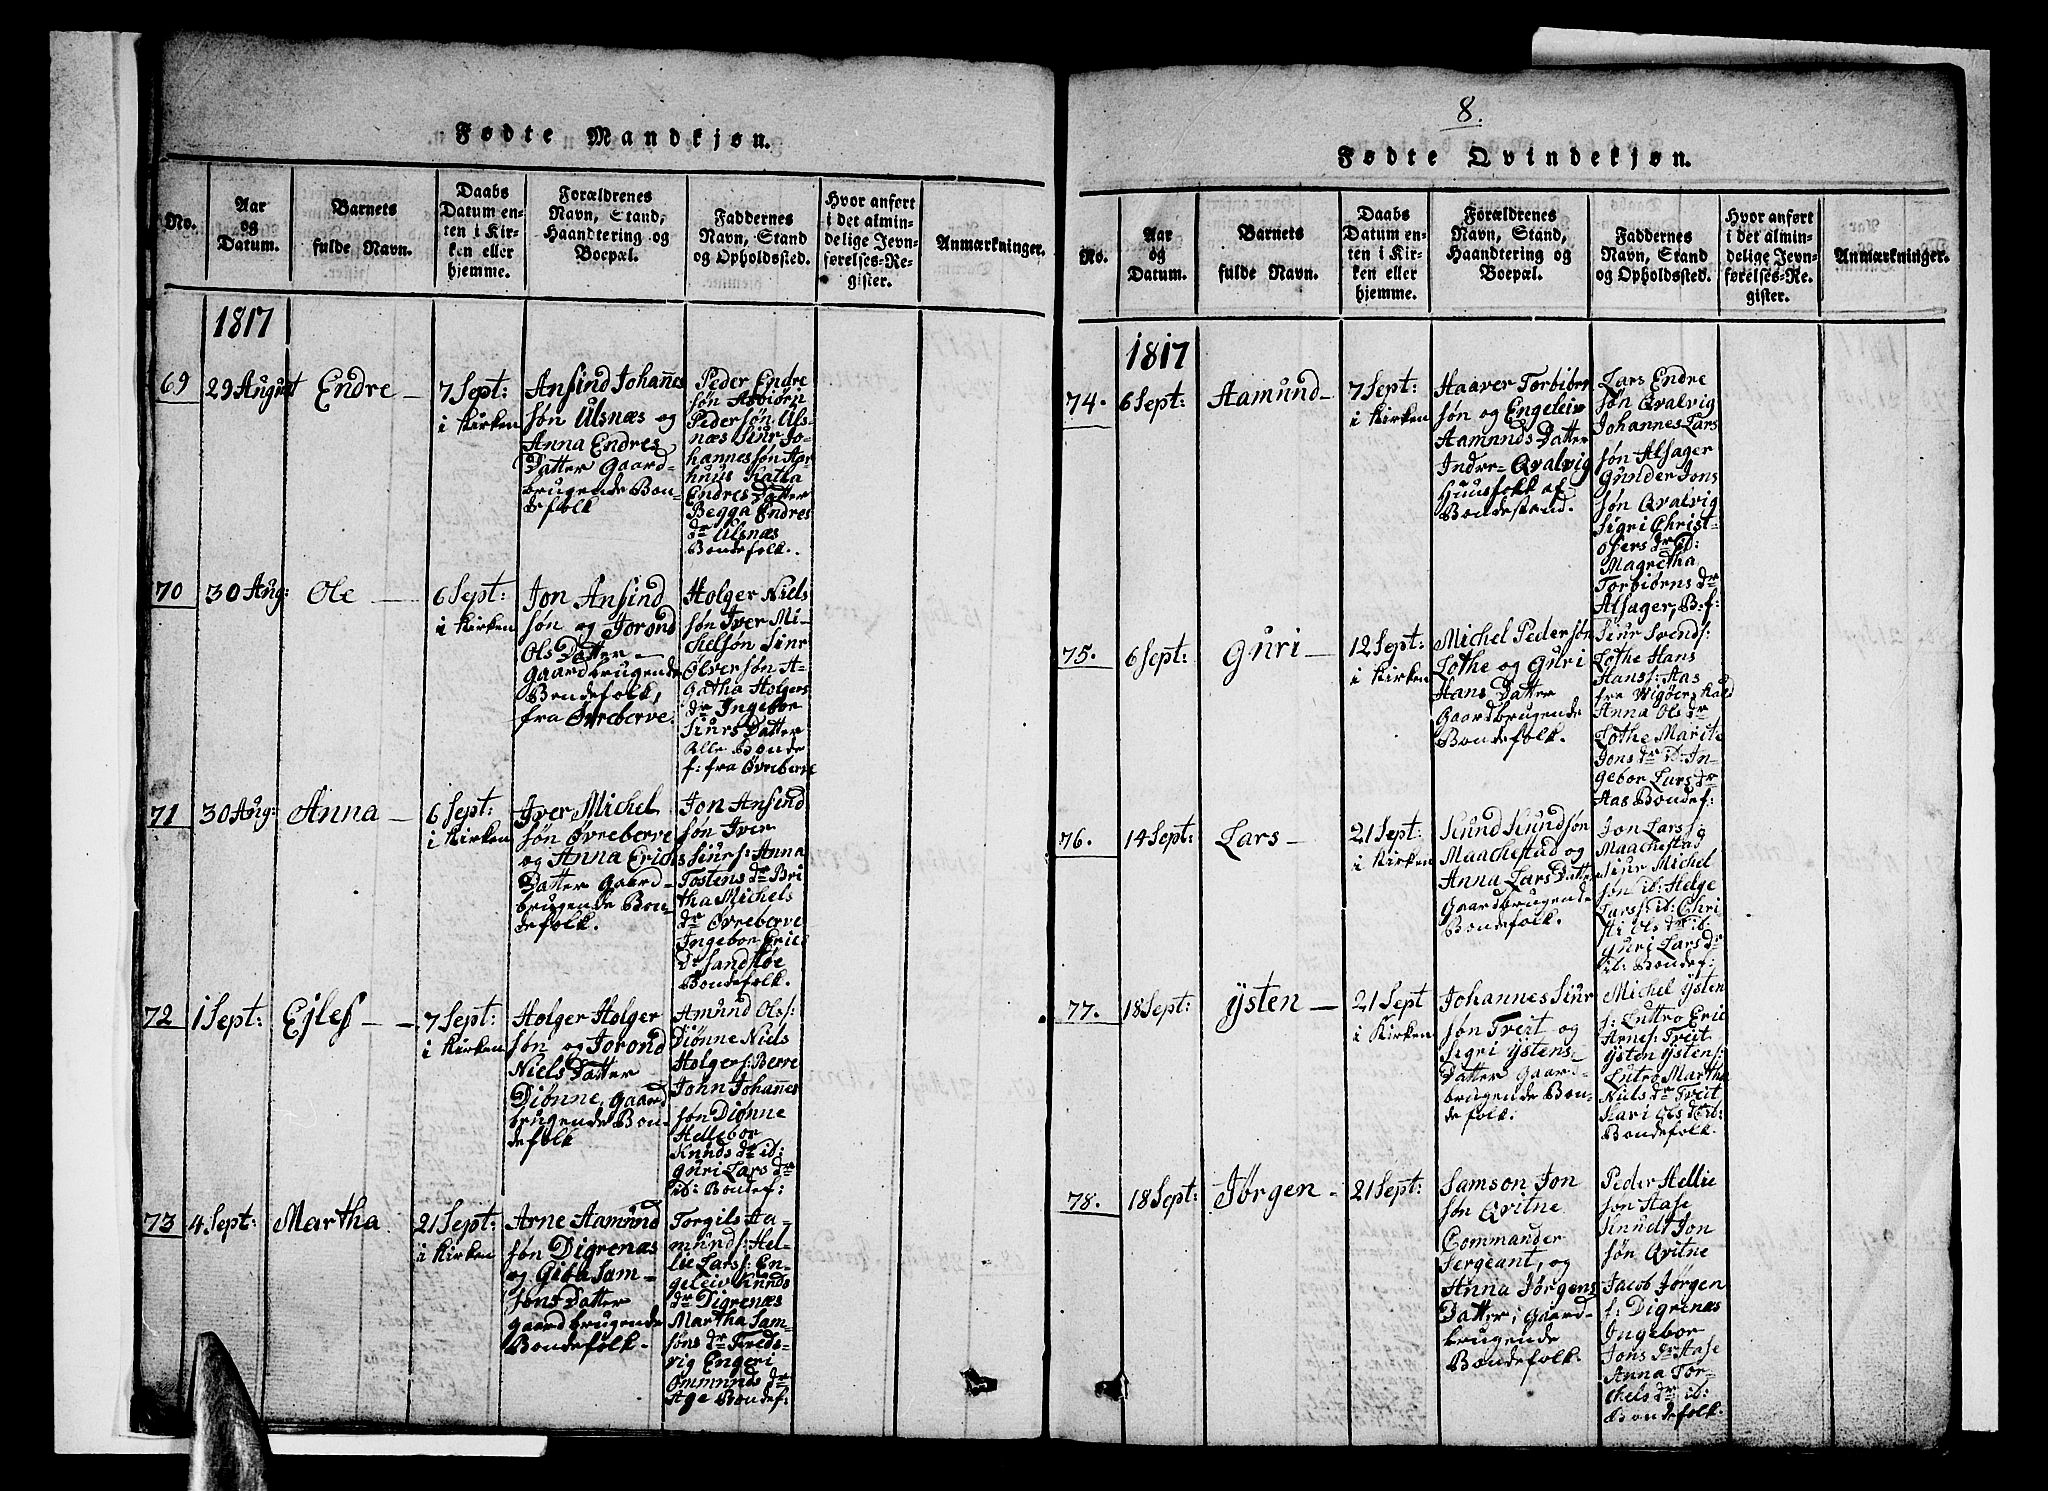 Fødte Mandkjøn.
No.
Aar
og
Datum.
Barnets
fulde Navn.
Daabs
Datum en-
ten i Kir-
ken eller
hjemme.
Forældrenes
Navn, Stand,
Haandtering og
Boepæl.
Faddernes
Navn, Stand
og Opholdssted.
Hvor anført
i det almin-
delige Jevn-
førelses-Re-
gister.
Anmærkninger.
1817
69
29 August
Endre
7 Sept:
i Kirken
Ansind Johannes
søn Ulsnæs og
Anna Endres
Datter Gaard-
brugende Bon-
defolk
Peder Endre
søn Asbiørn
Pedersøn Uls-
næs Siur Jo-
hannessøn Aar-
huus Katla
Endres Datter
Begga Endres
dr Ulsnæs
Bondefolk.
70
30 Aug:
Ole —
6 Sept:
i Kirken
Jon Ansind
søn og Jorond
Ols Datter —
Gaardbrugende
Bondefolk,
fra Øvreberve
Holger Niels
søn Iver Mi-
chelsøn Siur
Ølversøn A-
gatha Holgers
dr Ingebor
Siurs Datter
Alle Bonde
f: fra Øvreberve
71
30 Aug:
Anna —
6 Sept:
i Kirken
Iver Michel
søn Øvreberve
og Anna Erichs
Datter Gaard-
brugende Bon-
defolk.
Jon Ansind
søn Iver
Siurs: Anna
Tostens dr Bri
tha Michels
dr Øvreberve
Ingebor Erics
dr Sandstøe
Bondefolk.
72
1 Sept:
Ejlef — —
7 Sept:
i Kirken
Holger Holger
søn og Jorond
Niels Datter
Diønne, Gaard
brugende Bon-
defolk
Amund Ols:
Diønne Niels
Holgers: Berre
John Johannes
søn Diønne
Hellebor
Knuds dr id:
Guri Lars dr
id: Bondef:
73
4 Sept:
Martha
21 Sept:
i Kirken
Arne Aamund
søn Digrenæs
og Giøa Sam-
sons Datter
Gaardbrugende
Bondefolk.
Torgils Aa-
munds: Hel-
lie Lars: En-
geleiv Knuds
dr Digrenæs
Martha Sam-
søns dr Freds-
vig Engeri
Ommunds dr
Age Bondef:
8.
Fødte Qvindekjøn.
No.
Aar
og
Datum.
Barnets
fulde Navn.
Daabs
Datum en-
ten i Kir-
ken eller
hjemme.
Forældrenes
Navn, Stand,
Haandtering og
Boepæl.
Faddernes
Navn, Stand
og Opholdssted.
Hvor anført
i det almin-
delige Jevn-
førelses-Re-
gister.
Anmærkninger.
1817
74.
6 Sept:
Aamund —
7 Sept:
i Kirken
Haaver Torbiørn
søn og Engeleiv
Aamunds Datter
Indre-Qvalvig
Huusfolk af
Bondestand.
Lars Endre
søn Qvalvig
Johannes Lars
søn Alsager
Gunder Jons
søn Qvalvig
Sigri Christ-
ofers dr id:
Magretha
Torbiørns dr
Alsager, B. f:
75.
6 Sept:
Guri —
12 Sept:
i Kirken
Michel Pedersøn
Lothe og Guri
Hans Datter
Gaardbrugende
Bondefolk.
Siur Svends:
Lothe Hans
Hans: Aas
fra Vigøer
Anna Ols dr
Lothe Marite
Jons dr id: In-
gebor Lars dr
Aas Bondef:
76.
14 Sept:
Lars —
21 Sept:
i Kirken
Knud Knudsøn
Maachestad og
Anna Lars Datter
Gaardbrugende
Bondefolk.
Jon Lars:
Maachestad
Siur Michel
søn id: Helge
Lars: id: Chri
sti Ols dr id
Guri Lars dr
id: Bondef:
77.
18 Sept:
Ysten —
21 Sept
i Kirken
Johannes Siur
søn Treit og
Sigri Ystens-
Datter Gaard-
brugende Bon-
defolk:
Michel Ysten
s: Luttro Eric
Arnes: Treit
Ysten Ystens:
Lutro Martha
Niels dr Treit
Kari Ols dr id:
Bondefolk.
78.
18 Sept:
Jørgen —
21 Sept:
Samson Jon
søn Qvitne
Commander
Sergeant, og
Anna Jørgens
Datter, Gaard-
brugende
Bondefolk.
Peder Hellie
søn Aase
Knudt Jon
søn Qvitne
Jacob Jørgen
s: Digrenæs
Ingebor
Jons dr Aase
Anna Tor-
chels dr id:
Bondefolk.